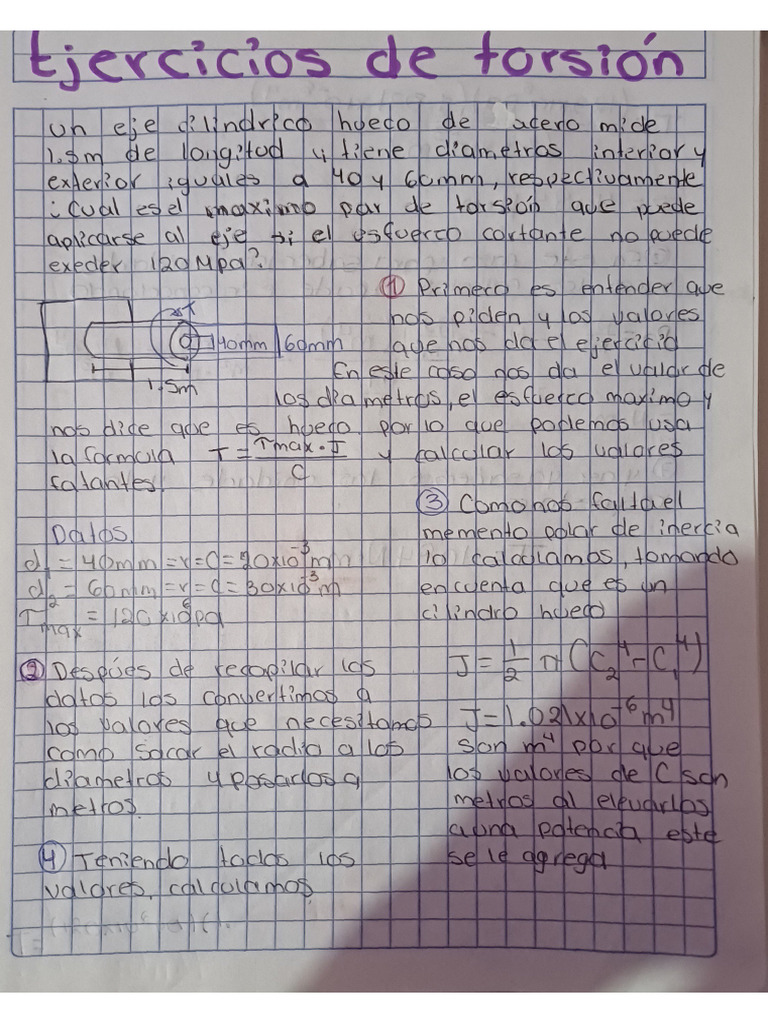 Ejercicios de torsión
Un eje cilindrico hueco de acero mide
1.5m de longitud y tiene diametros interior y
exterior iguales a 40 y 60mm, respectivamente
¿Cual es el maximo par de torsión que puede
aplicarse al eje si el esfuerco cortante no puede
exeder 120Mpa?
① Primero es entender que
nos piden y los valores
que nos da el ejercicio
En este caso nos da el valor de
los diametros, el esfuerco maximo y
40mm 60mm
1.5m
nos dice que es hueco por lo que podemos usa
la formula T = τmax · J / C y calcular los valores
faltantes.
Datos.
d₁ = 40mm = r = C = 20x10⁻³m
d₂ = 60mm = r = C = 30x10⁻³m
τmax = 120x10⁶pa
② Despúes de recopilar los
datos los convertimos a
los valores que necesitamos
como sacar el radio a los
diametros y pasarlos a
metros.
③ Como nos falta el
memento polar de inercia
lo calculamos, tomando
en cuenta que es un
cilindro hueco
J = 1/2 π (C₂⁴ - C₁⁴)
J = 1.021x10⁻⁶m⁴
son m⁴ por que
los valores de C son
metros al elevarlos
a una potencia este
se le agrega
④ Teniendo todos los
valores, calculamos